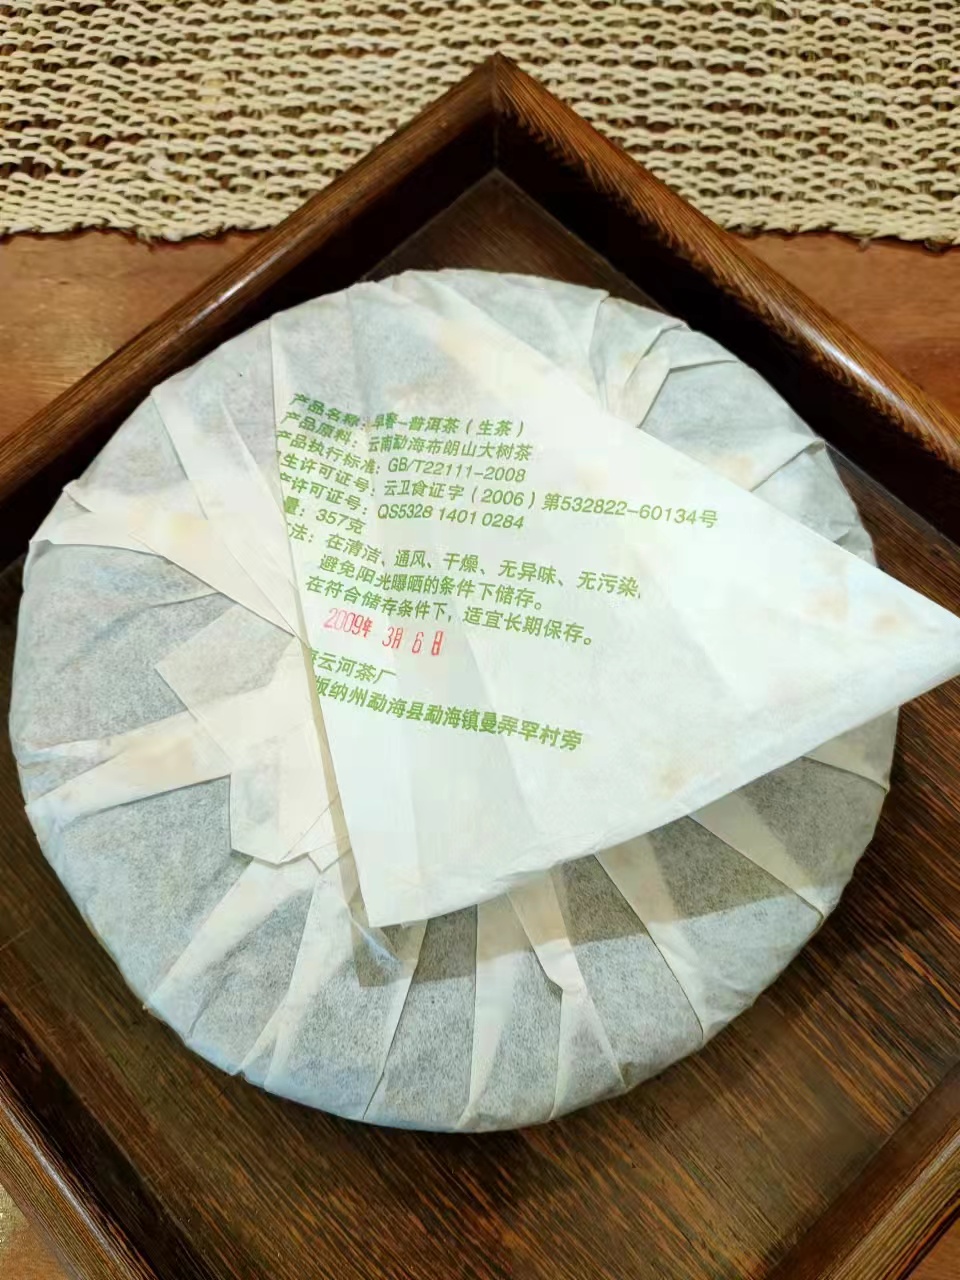 产品名称：早春-普洱茶（生茶）
产品原料：云南勐海布朗山大树茶
产品执行标准：GB/T22111-2008
生许可证号：云卫食证字（2006）第532822-60134号
产许可证号：QS5328 1401 0284
量：357克
法：在清洁、通风、干燥、无异味、无污染，
避免阳光曝晒的条件下储存。
在符合储存条件下，适宜长期保存。
2009年 3月 6日
云河茶厂
版纳州勐海县勐海镇曼弄罕村旁